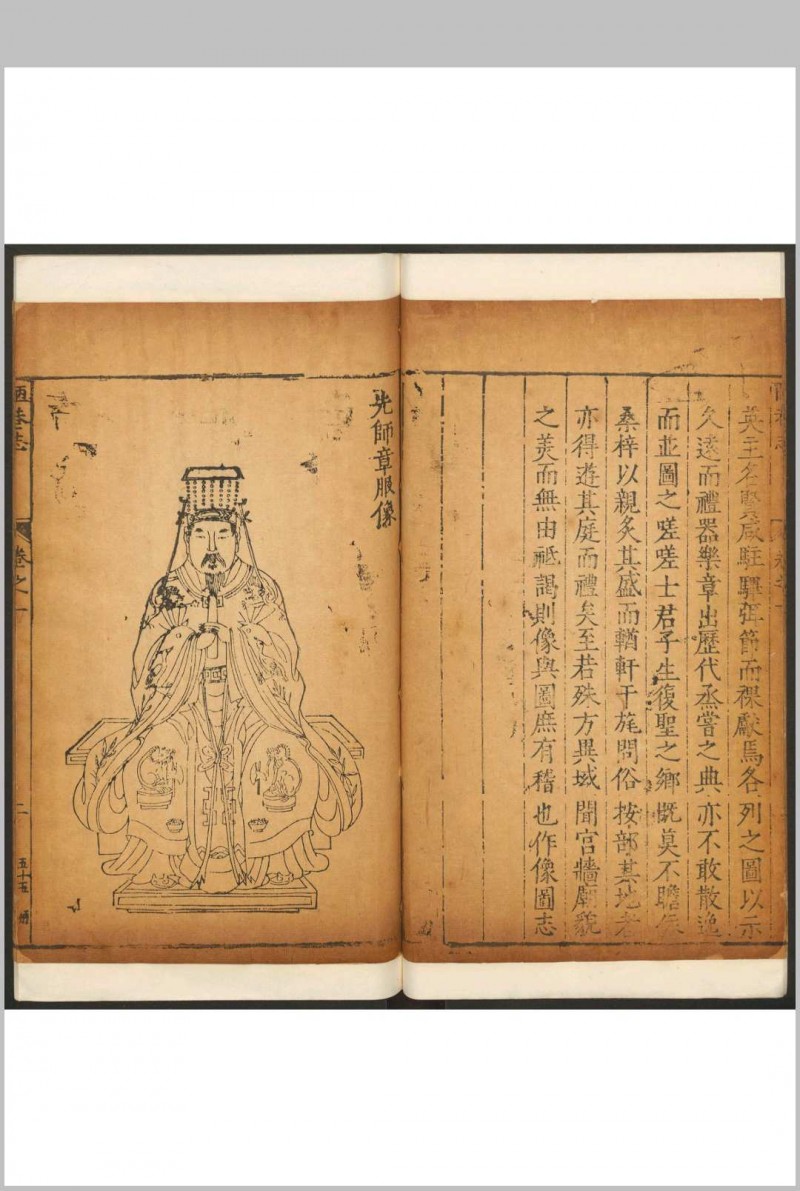 英主名賢咸駐驆弭節而祼獻焉各列之圖以示
久遠而禮器樂章出歷代烝嘗之典亦不敢散逸
而並圖之嗟嗟士君子生復聖之鄉既莫不瞻依
桑梓以親炙其盛而輶軒干旄問俗按部其地者
亦得遊其庭而禮矣至若殊方異域聞宮牆廟貌
之美而無由祗謁則像與圖庶有稽也作像圖志
先師章服像
陋巷志
卷之一
二
五十五